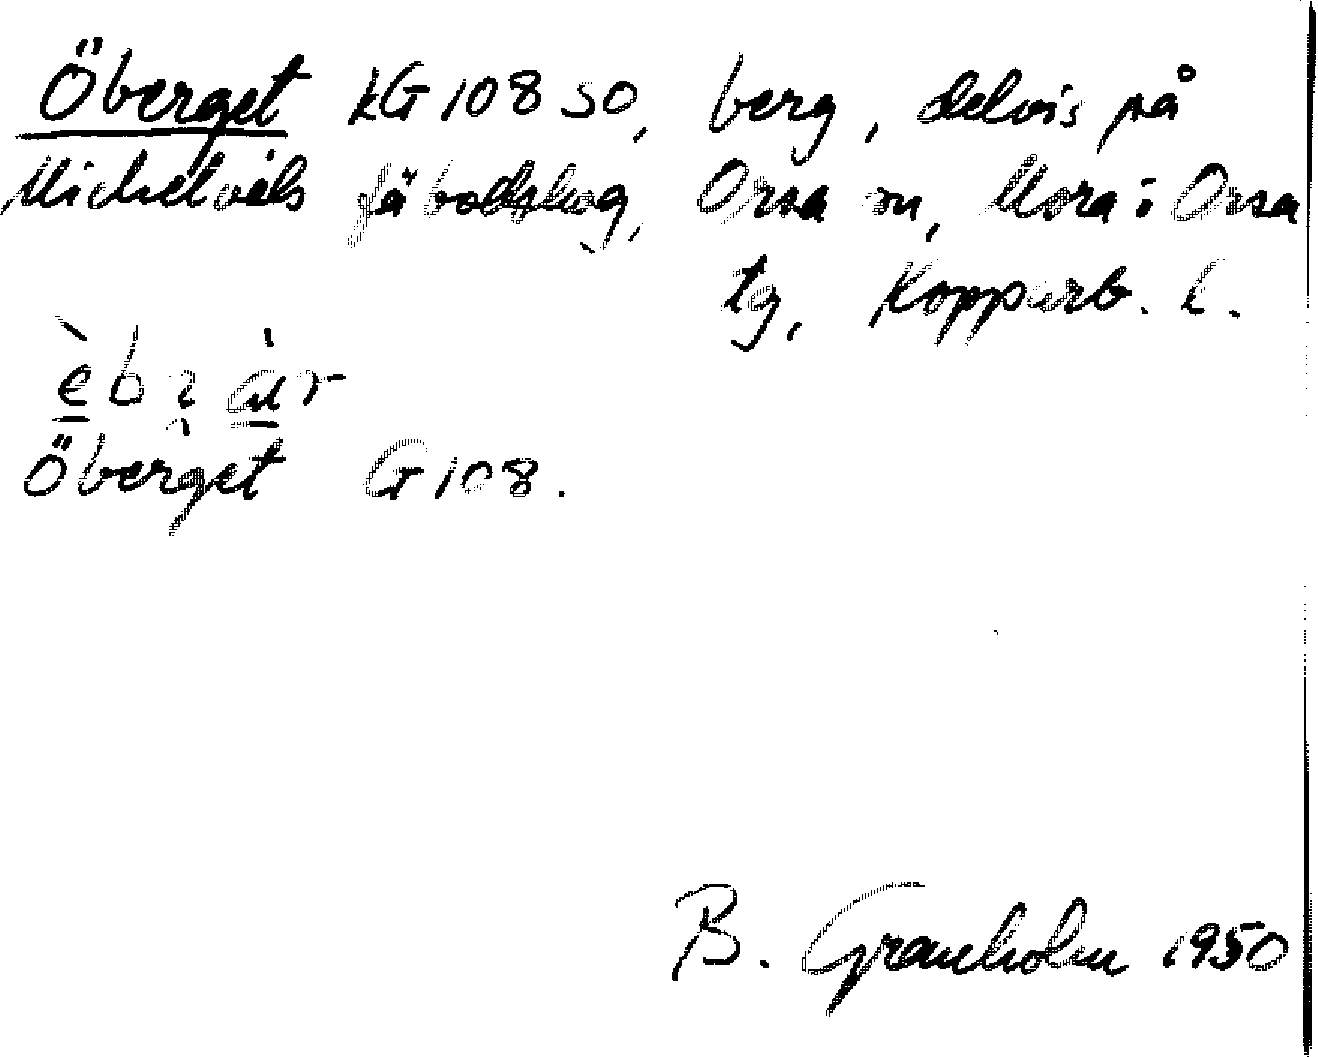 Öberget kG 108 SO, berg, delvis på
Michelvåls fäbodskog, Orsa sn, Mora i Orsa
tg, Kopparb. l.
Öberget G 108.
B. Granholm 1950